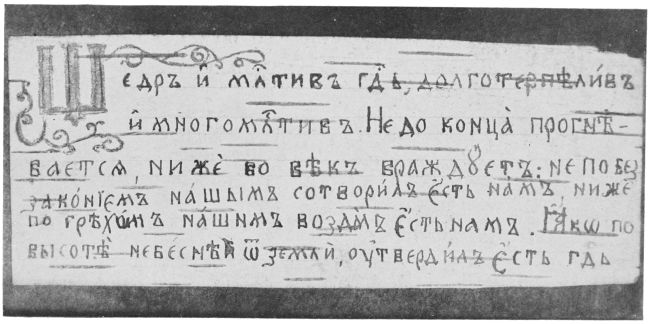 Щедръ и҆ мл҃тивъ гдⷭ҇ь, долготерпѣли́въ
и҆ мно́гомл҃тивъ. Не до конца̀ прогнѣ-
ваетсѧ, нижѐ во вѣкъ враждꙋетъ: не по без
зако́нїемъ на́шымъ сотвори́лъ є҆́сть намъ, нижѐ
по грѣхо́мъ на́шимъ воздаⷧ҇ъ є҆́сть намъ. Ꙗ҆́кѡ по
высотѣ̀ небе́снѣй ѿ землѝ, ᲂу҆тверди́лъ є҆́сть гдⷭ҇ь